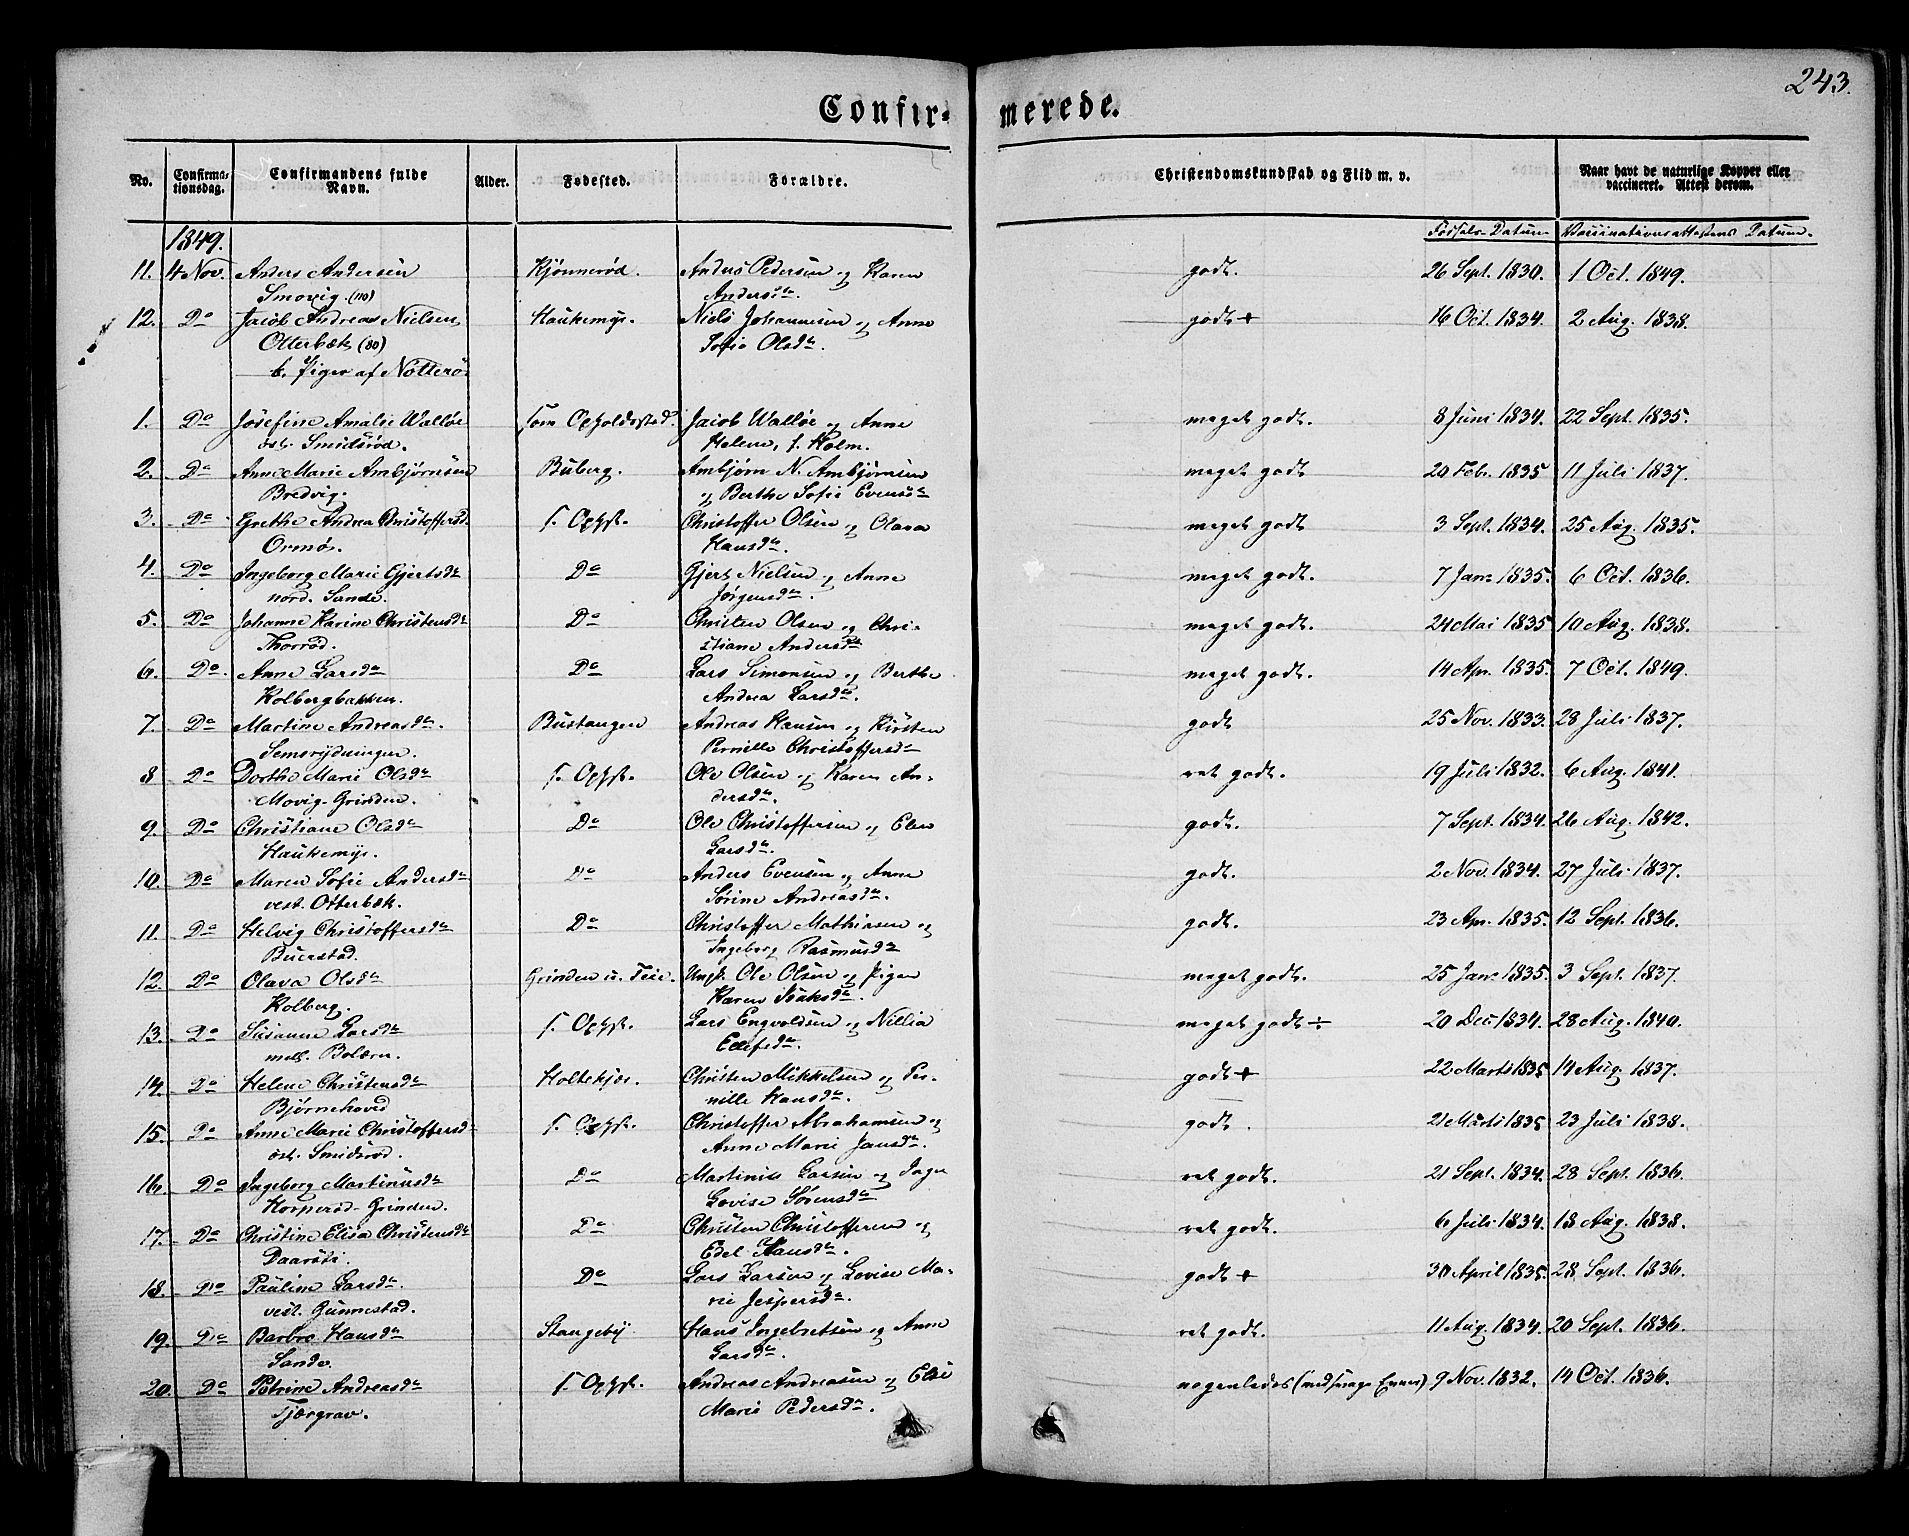 243.
Confir- merede.
No. Confirma-tionsdag. Confirmandens fulde Navn. Alder. Fødested. Forældre. Christendomskundskab og Flid m. v. Naar havt de naturlige Kopper eller vaccineret. Attest derom.
1849. Fødsels-Datum Vaccinationsattestens Datum.
11. 4 Nov. Anders Andersen Kjönnerød. Anders Pedersen og Karen godt. 26 Sept. 1830. 1 Oct. 1849.
Smovig. (110) Andersdr.
12. Do Jacob Andreas Nielsen Haukemyr. Niels Johannesen og Anne godt + 16 Oct. 1834. 2 Aug. 1838.
Otterbæk (80) Sofie Olsdr.
b. Piger af Nøtterø.
1. Do Josefine Amalie Walløe som Opholdssted. Jacob Walløe og Anne meget godt. 8 Juni 1834. 22 Sept. 1835.
öst. Smidsrød. Helene, f. Holm.
2. Do Anne Marie Ambjørnsen Buberg. Ambjørn N. Ambjørnsen meget godt 20 Febr. 1835 11 Juli 1837.
Bredvig. og Berthe Sofie Evensdr
3. Do Grethe Andrea Christoffersd. s. Ophst. Christoffer Olsen og Olava meget godt 3 Sept. 1834. 25 Aug. 1835.
Ormø. Hansdr.
4. Do Ingeborg Marie Gjertsdr Do Gjert Nielsen og Anne meget godt. 7 Janr 1835. 6 Oct. 1836.
nord. Sande. Jørgensdr.
5. Do Johanne Karine Christensdr Do Christen Olsen og Chri- meget godt. 24 Mai 1835 10 Aug. 1838.
Thorrød. stiane Andersdr
6. Do Anne Larsdr Do Lars Simonsen og Berthe meget godt. 14 Apr. 1835. 7 Oct. 1849.
Kolbergbakken. Andrea Larsdr.
7. Do Martine Andreasdr. Bustangen Andreas Hansen og Kirsten godt 25 Nov. 1833. 28 Juli 1837.
Semsrydningen. Pernille Christoffersdr
8 Do Dorthe Marie Olsdr s. Ophst. Ole Olsen og Karen An- ret godt. 19 Juli 1832. 6 Aug. 1841.
Movig-Grinden. dersdr.
9 Do Christiane Olsdr Do Ole Christoffersen og Elen godt. 7 Sept. 1834. 26 Aug. 1842.
Haukemyr. Larsdr.
10. Do Maren Sofie Andersdr Do Anders Evensen og Anne godt. 2 Nov. 1834. 27 Juli 1837.
vest. Otterbæk. Sörine Andreasdr.
11. Do Helvig Christoffersdr Do Christoffer Mathiasen og godt. 23 Apr. 1835. 12 Sept. 1836.
Buerstad. Ingeborg Rasmusdr
12. Do Olava Olsdr Grinden u. Teie. Ungk. Ole Olsen og Pigen meget godt. 25 Janr 1835. 3 Sept. 1837.
Kolberg. Karen Isaksdr.
13. Do Susanne Larsdr s. Ophst. Lars Engvoldsen og Nillia meget godt ÷ 20 Dec 1834. 28 Aug. 1840.
mell. Bolærn. Ellefsdr.
14. Do Helene Christensdr Holtekjær. Christen Mikkelsen og Per- godt + 22 Marts 1835 14 Aug. 1837.
Bjørnehoved nille Hansdr.
15. Do Anne Marie Christoffersd. s. Ophst. Christoffer Abrahamsen og godt. 21 Marts 1835 23 Juli 1838.
öst. Smidsrød. Anne Marie Jansdr.
16. Do Ingeborg Martinusdr Do Martinus Larsen og Inger ret godt. 21 Sept. 1834. 28 Sept. 1836.
Horperød-Grinden. Lovise Sørensdr
17. Do Christine Elisa Christensdr Do Christen Christoffersen og ret godt. 6 Juli 1834. 18 Aug. 1838.
Daarsti. Edel Hansdr.
18. Do Pauline Larsdr Do Lars Larsen og Lovise Ma- godt + 30 April 1835. 28 Sept. 1836.
vest. Gunnestad. rie Jespersdr.
19. Do Barbro Hansdr Stangeby. Hans Ingebretsen og Anne ret godt. 11 Aug. 1834. 20 Sept. 1836.
Sande. Larsdr.
20. Do Petrine Andreasdr s. Ophst. Andreas Andreasen og Else nogenledes (med svage Evner) 9 Nov. 1832. 14 Oct. 1836.
Tjærgrav. Marie Pedersdr.